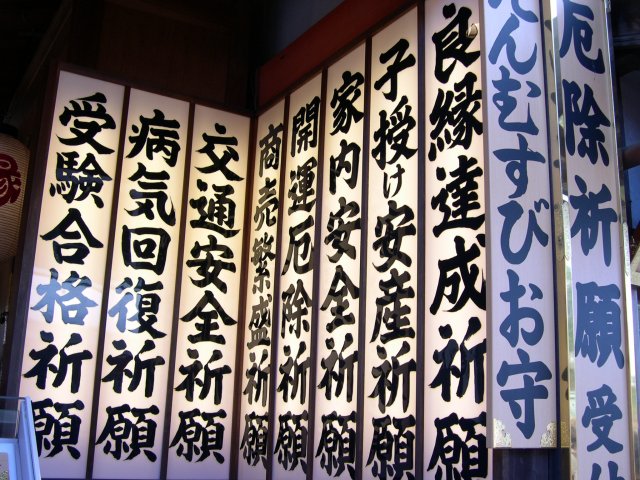 厄除祈願受付
えんむすびお守
良縁達成祈願
子授け安産祈願
家内安全祈願
開運厄除祈願
商売繁盛祈願
交通安全祈願
病気回復祈願
受験合格祈願